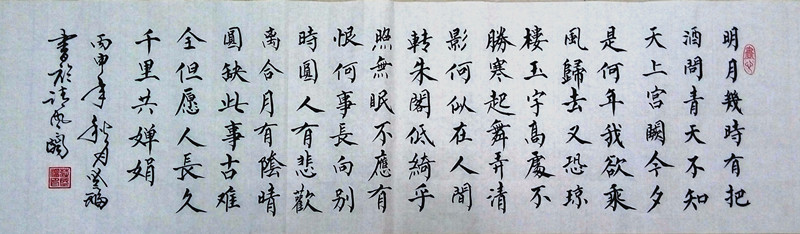 明月幾時有把
酒問青天不知
天上宮闕今夕
是何年我欲乘
風歸去又恐琼
樓玉宇高處不
勝寒起舞弄清
影何似在人間
轉朱閣低綺乎
照無眠不應有
恨何事長向別
時圓人有悲歡
离合月有陰晴
圓缺此事古难
全但愿人長久
千里共嬋娟
丙申年秋月
書於